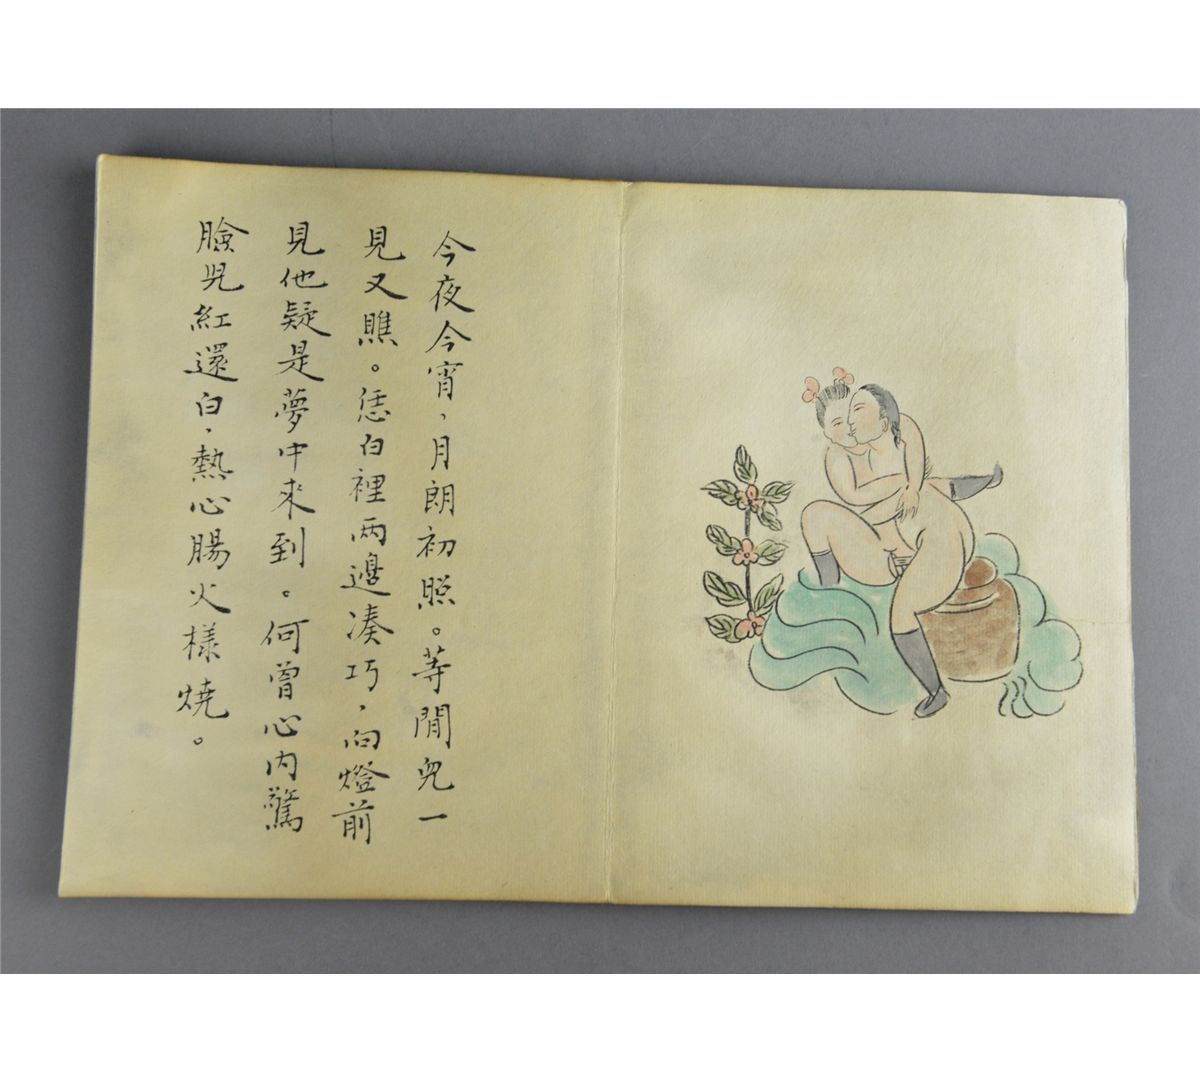 今夜今宵，月朗初照。等閒兒一
見又瞧。恁白裡兩邊湊巧，向燈前
見他疑是夢中來到。何曾心内驚
臉兒紅還白，熱心腸火樣燒。